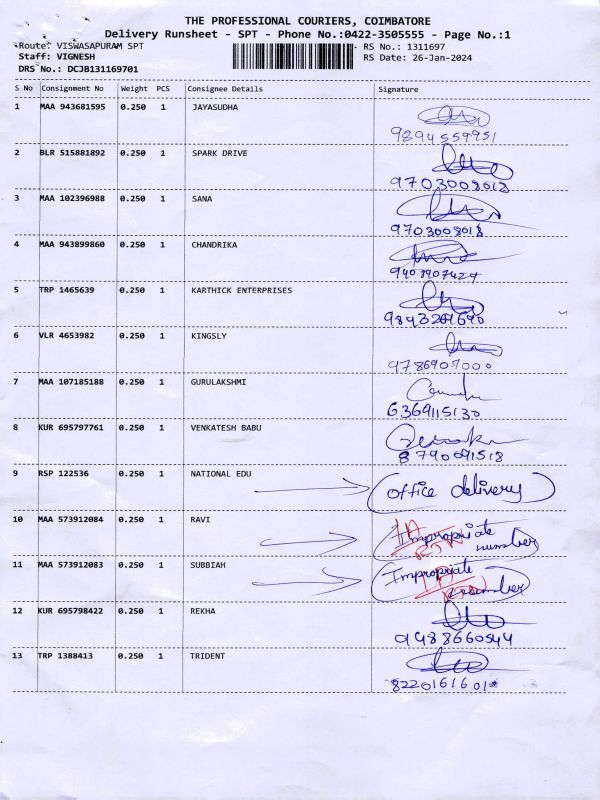 THE PROFESSIONAL COURIERS, COIMBATORE
Delivery Runsheet - SPT - Phone No.:0422-3505555 - Page No.:1
Route: VISWASAPURAM SPT RS No.: 1311697
Staff: VIGNESH RS Date: 26-Jan-2024
DRS No.: DCJB131169701
S No Consignment No Weight PCS Consignee Details Signature
1 MAA 943681595 0.250 1 JAYASUDHA
9894559951
2 BLR 515881892 0.250 1 SPARK DRIVE
9703008018
3 MAA 102396988 0.250 1 SANA
9703008018
4 MAA 943899860 0.250 1 CHANDRIKA
5 TRP 1465639 0.250 1 KARTHICK ENTERPRISES
6 VLR 4653982 0.250 1 KINGSLY
7 MAA 107185188 0.250 1 GURULAKSHMI
6369115130
8 KUR 695797761 0.250 1 VENKATESH BABU
8790091518
9 RSP 122536 0.250 1 NATIONAL EDU office delivery
10 MAA 573912084 0.250 1 RAVI Impropriate
number
11 MAA 573912083 0.250 1 SUBBIAH Impropriate
number
12 KUR 695798422 0.250 1 REKHA
9488660544
13 TRP 1388413 0.250 1 TRIDENT
8220161601